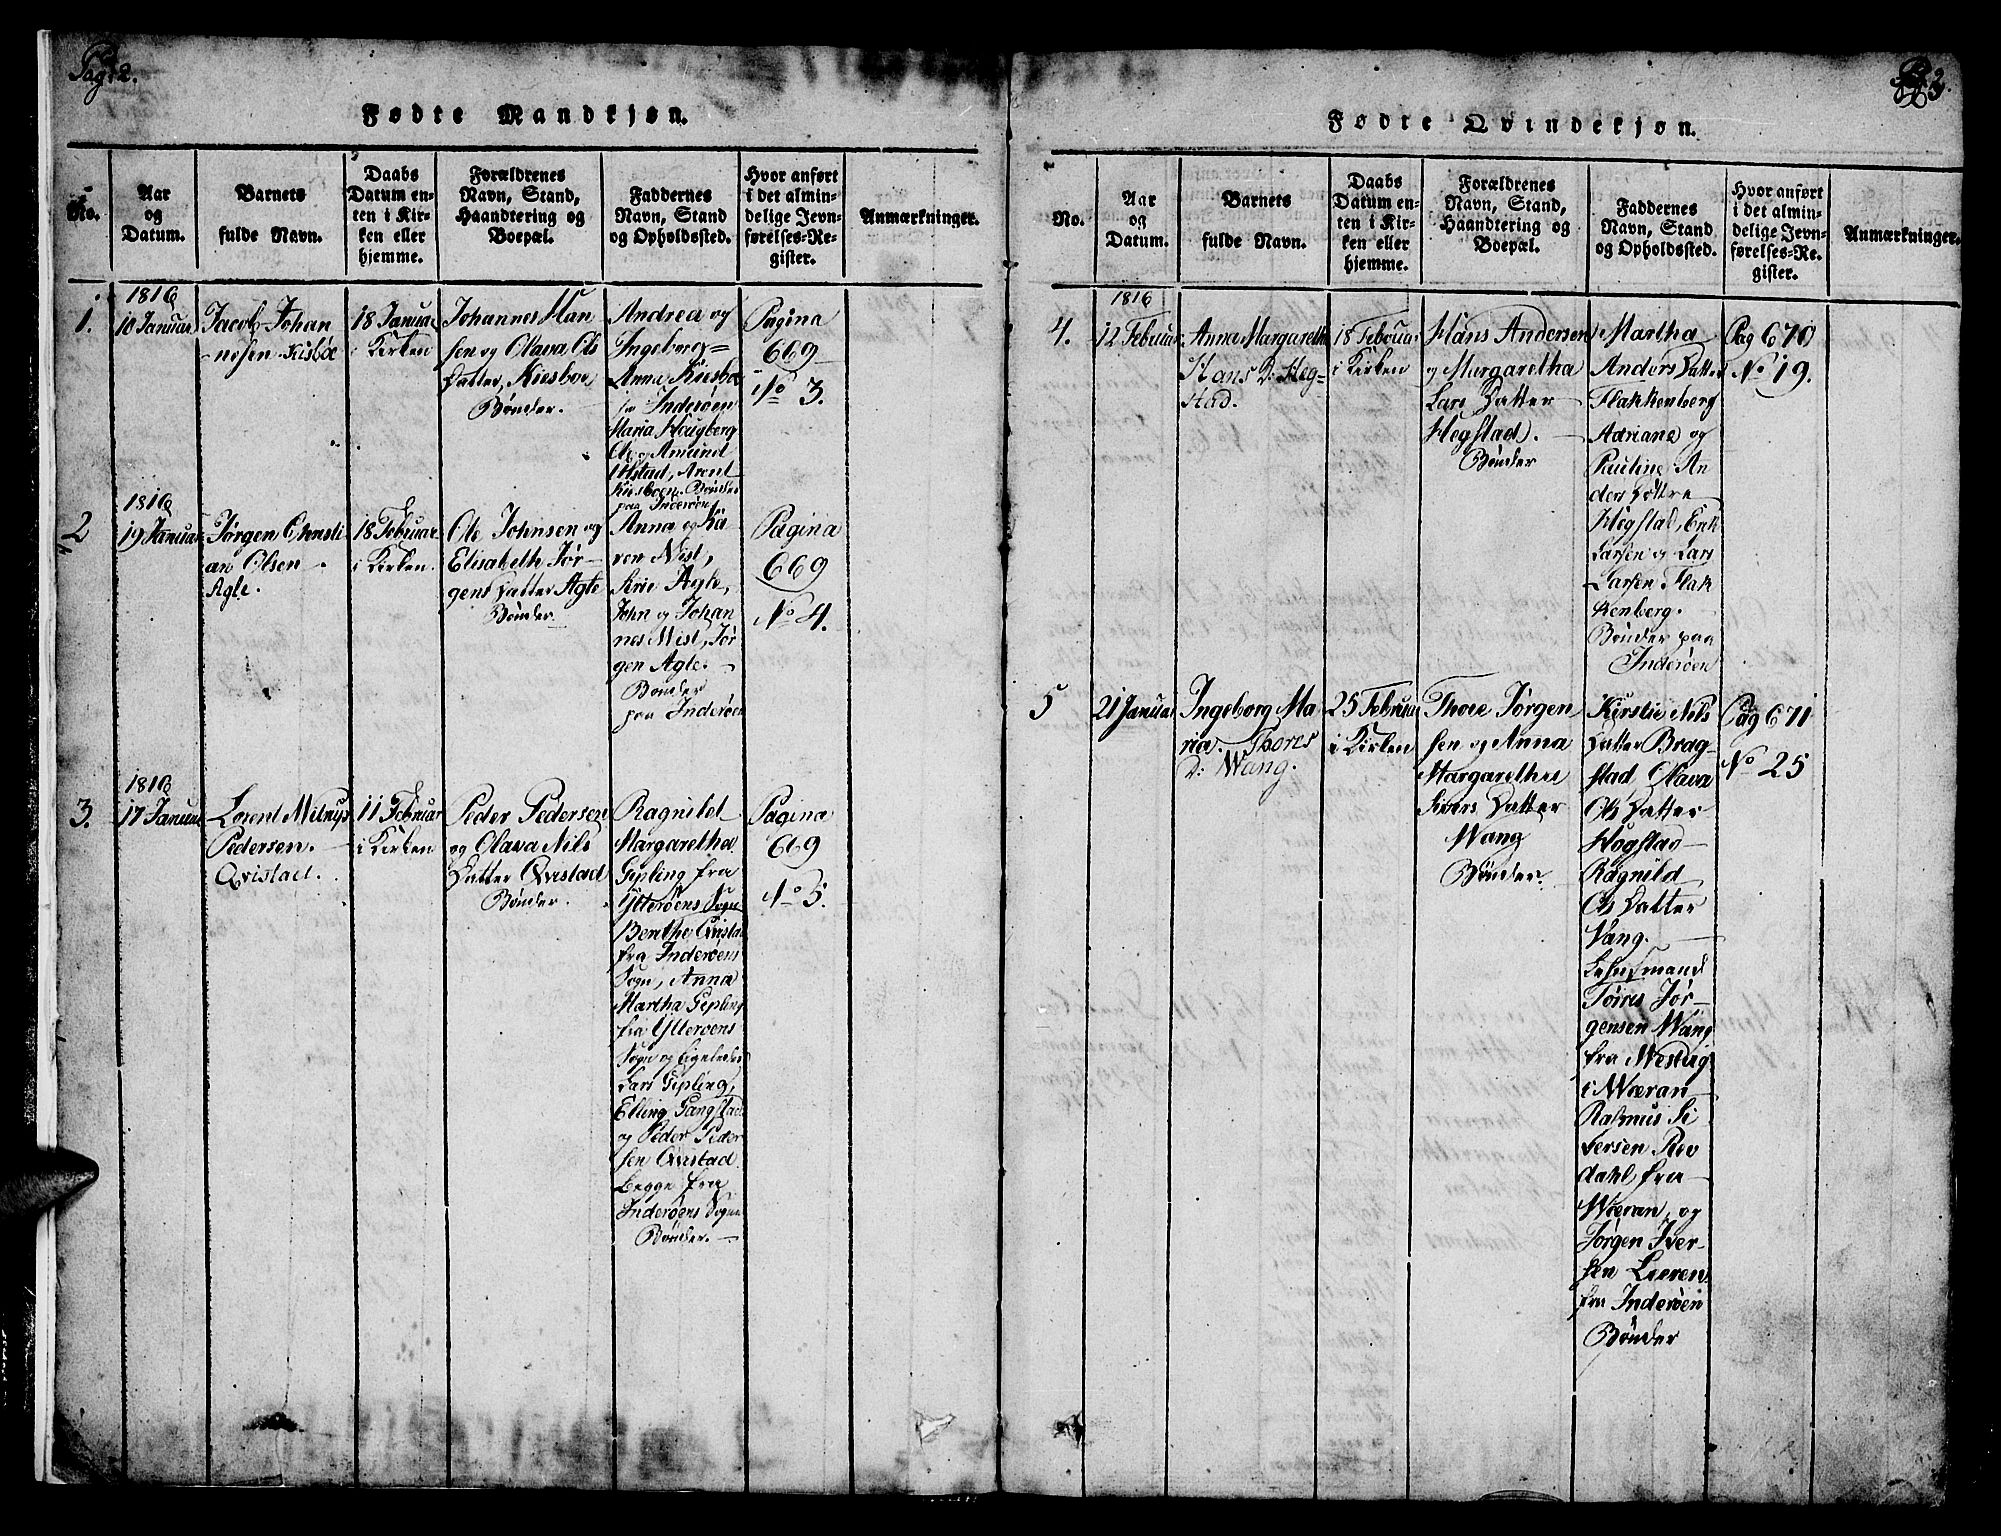 Pag: 2.
Fødte Mandkjøn.
No.
Aar
og
Datum.
Barnets
fulde Navn.
Daabs
Datum en-
ten i Kir-
ken eller
hjemme.
Forældrenes
Navn, Stand,
Haandtering og
Boepæl.
Faddernes
Navn, Stand
og Opholdssted.
Hvor anført
i det almin-
delige Jevn-
førelses-Re-
gister.
Anmærkninger.
1.
1816
10 Januar
Jacob Johan
nesen Kisbøe
18 Januar
i Kirken
Johannes Han
sen og Olava Ols
Datter, Kiesboe
Bønder.
Andrea og
Ingeborg
Anna Kiesboe
Inderøen
Maria Hougberg
Ole og Amund
Ulstad, Arent
Kiesboen. Bønder
paa Inderøen
Pagina
669
No 3.
2
1816
19 Januar
Jørgen Christi
an Olsen
Agle.
18 Februar
i Kirken.
Ole Johnsen og
Elisabeth Jør-
gens Datter Agle
Bønder
Anna og Ka
ren Nist,
Agle,
John og Johan
nes Nist, Jør
gen Agle.
Bønder
paa Inderøen
Pagina
669
No 4.
3.
1816
17 Januar
Lorent
Pedersen.
Qvistad.
11 Februar
i Kirken
Peder Pedersen
og Olava Nils
Datter Qvistad
Bønder.
Ragnild
Margaretha
Gipling fra
Ytterøens Sogn
Berithe Qvistad
fra Inderøens
Sogn, Anna
Martha Gipling
fra Ytterøens
Sogn og
Lars Gipling,
Elling Gangstad
og Peder Peder
sen Qvistad
begge fra
Inderøens Sogn
Bønder.
Pagina
669
No 5.
3.
Fødte Qvindekjøn.
No.
Aar
og
Datum.
Barnets
fulde Navn.
Daabs
Datum en-
ten i Kir-
ken eller
hjemme.
Forældrenes
Navn, Stand,
Haandtering og
Boepæl.
Faddernes
Navn, Stand
og Opholdssted.
Hvor anført
i det almin-
delige Jevn-
førelses-Re-
gister.
Anmærkninger.
4.
1816
12 Februar
Anna Margaretha
Hans D: Heg-
stad.
18 Februar
i Kirken
Hans Andersen
og Margaretha
Lars Datter
Hegstad.
Bønder
Martha
Anders Datter
Flakkenberg
Adriane og
Pauline An
ders Døttre
Hegstad, Erik
Larsen og Lars
Larsen Flak
kenberg.
Bønder paa
Inderøen
Pag 670
No 19.
5
21 Januar
Ingeborg Ma
ria. Thores
D: Wang.
25 Februar
i Kirken
Thore Jørgen
sen og Anna
Margaretha
Sivers Datter
Wang
Bønder.
Kirstie Nils
Datter Brag-
stad, Olava
Ols Datter
Hogstad
Ragnild
Ols Datter
Vang.
Lehnsmand
Tørris Jør-
gensen Wang
fra
i Wæran
Rasmus Si
versen
dahl fra
Wæran, og
Jørgen Iver-
sen Lieren
fra Inderøen
Bønder
Pag 671
No 25